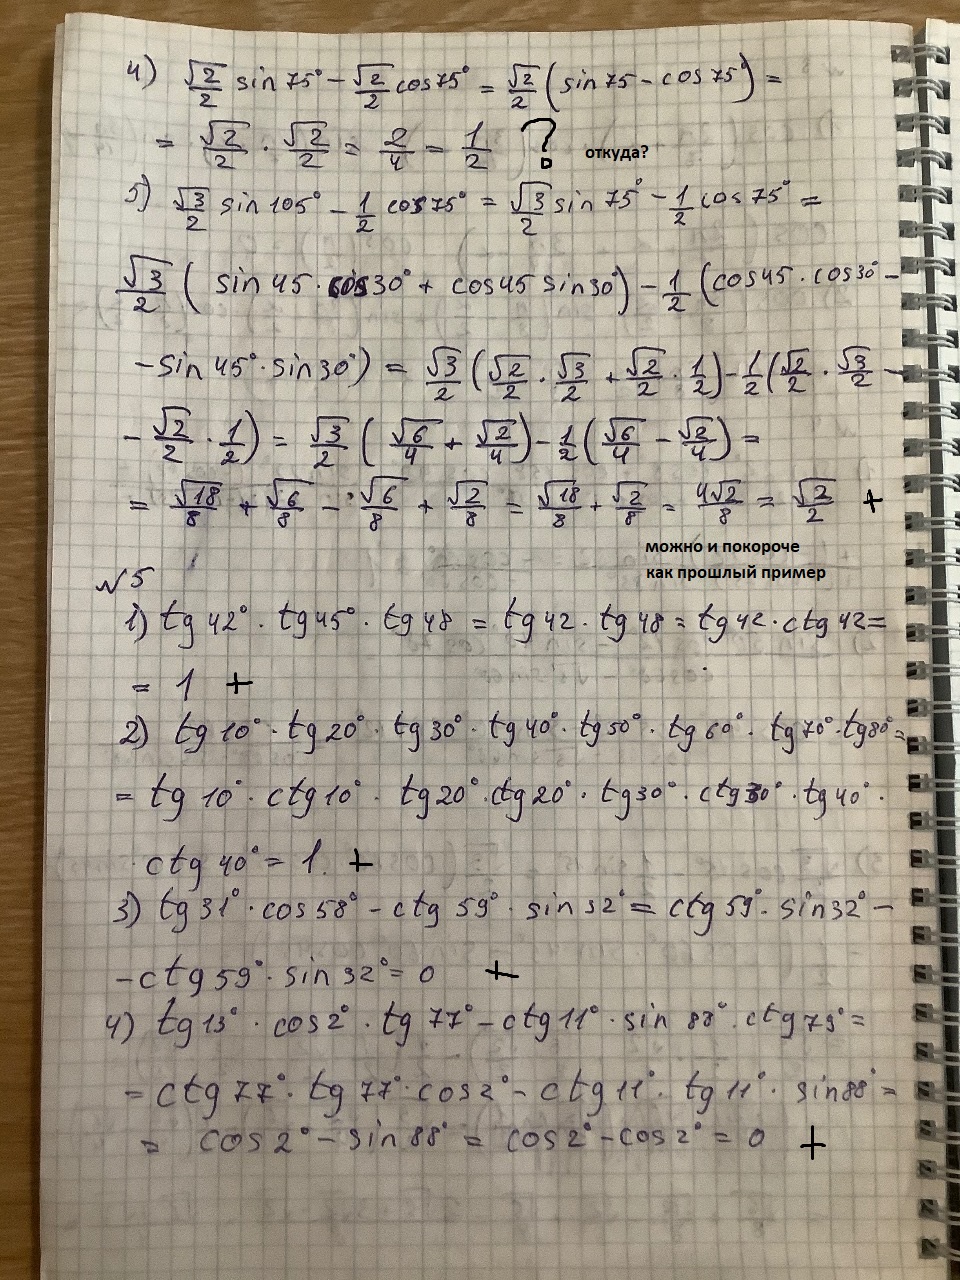 4) √2/2 sin 75° - √2/2 cos 75° = √2/2 (sin 75 - cos 75°) =
= √2/2 · √2/2 = 2/4 = 1/2 ? откуда?
5) √3/2 sin 105° - 1/2 cos 75° = √3/2 sin 75° - 1/2 cos 75° =
√3/2 ( sin 45 · cos 30° + cos 45 sin 30°) - 1/2 (cos 45 · cos 30° -
- sin 45° · sin 30°) = √3/2 (√2/2 · √3/2 + √2/2 · 1/2) - 1/2 (√2/2 · √3/2 -
- √2/2 · 1/2) = √3/2 ( √6/4 + √2/4) - 1/2 (√6/4 - √2/4) =
= √18/8 + √6/8 - √6/8 + √2/8 = √18/8 + √2/8 = 4√2/8 = √2/2 +
можно и покороче
как прошлый пример
№5
1) tg 42° · tg 45° · tg 48 = tg 42 · tg 48 = tg 42 · ctg 42 =
= 1 +
2) tg 10° · tg 20° · tg 30° · tg 40° · tg 50° · tg 60° · tg 70° · tg 80° =
= tg 10° · ctg 10° · tg 20° · ctg 20° · tg 30° · ctg 30° · tg 40° ·
ctg 40° = 1. +
3) tg 31° · cos 58° - ctg 59° · sin 32° = ctg 59° · sin 32° -
- ctg 59° · sin 32° = 0 +
4) tg 13° · cos 2° · tg 77° - ctg 11° · sin 88° · ctg 79° =
= ctg 77° · tg 77° · cos 2° - ctg 11° · tg 11° · sin 88° =
= cos 2° - sin 88° = cos 2° - cos 2° = 0 +